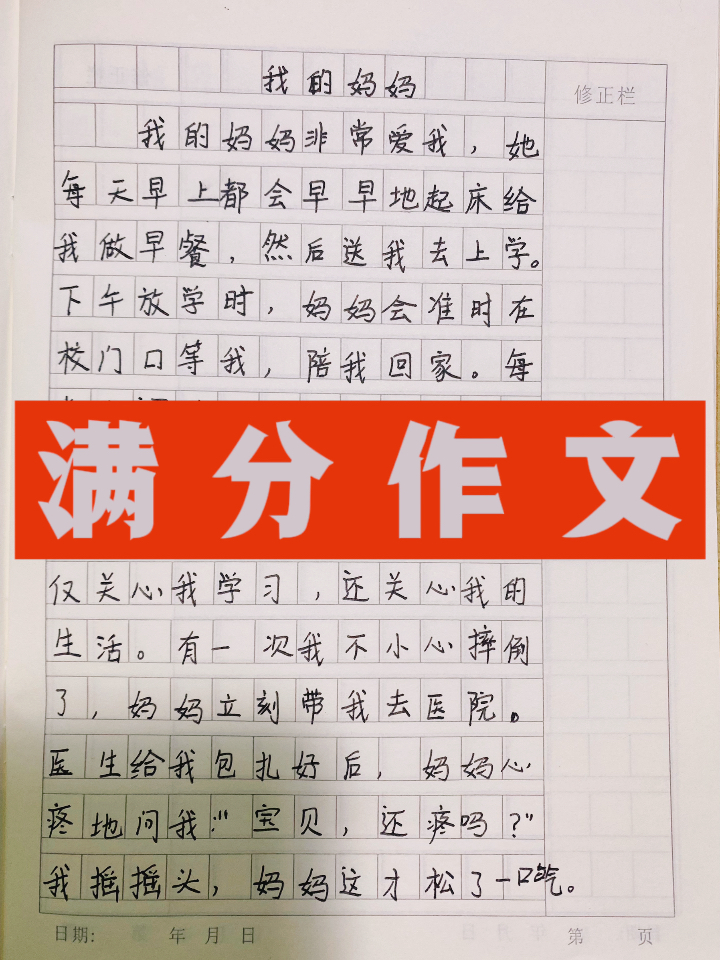 我的妈妈
修正栏
我的妈妈非常爱我，她
每天早上都会早早地起床给
我做早餐，然后送我去上学。
下午放学时，妈妈会准时在
校门口等我，陪我回家。每
满分作文
仅关心我学习，还关心我的
生活。有一次我不小心摔倒
了，妈妈立刻带我去医院。
医生给我包扎好后，妈妈心
疼地问我:"宝贝，还疼吗?"
我摇摇头，妈妈这才松了一口气。
日期: 年 月 日 第 页